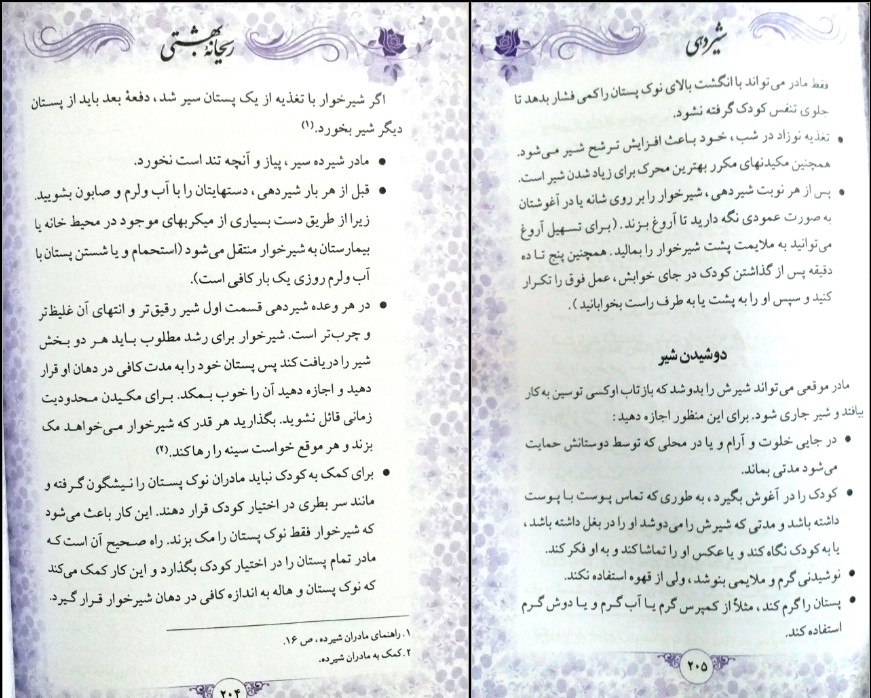 ریحانهٔ بهشتی
اگر شیرخوار با تغذیه از یک پستان سیر شد، دفعهٔ بعد باید از پستان
دیگر شیر بخورد.(۱)
• مادر شیرده سیر، پیاز و آنچه تند است نخورد.
• قبل از هر بار شیردهی، دستهایتان را با آب ولرم و صابون بشویید.
زیرا از طریق دست بسیاری از میکربهای موجود در محیط خانه یا
بیمارستان به شیرخوار منتقل می‌شود (استحمام و یا شستن پستان با
آب ولرم روزی یک بار کافی است).
• در هر وعده شیردهی قسمت اول شیر رقیق‌تر و انتهای آن غلیظ‌تر
و چرب‌تر است. شیرخوار برای رشد مطلوب باید هر دو بخش
شیر را دریافت کند پس پستان خود را به مدت کافی در دهان او قرار
دهید و اجازه دهید آن را خوب بمکد. برای مکیدن محدودیت
زمانی قائل نشوید. بگذارید هر قدر که شیرخوار می‌خواهد مک
بزند و هر موقع خواست سینه را رها کند.(۲)
• برای کمک به کودک نباید مادران نوک پستان را نیشگون گرفته و
مانند سر بطری در اختیار کودک قرار دهند. این کار باعث می‌شود
که شیرخوار فقط نوک پستان را مک بزند. راه صحیح آن است که
مادر تمام پستان را در اختیار کودک بگذارد و این کار کمک می‌کند
که نوک پستان و هاله به اندازه کافی در دهان شیرخوار قرار گیرد.
۱. راهنمای مادران شیرده، ص ۱۶.
۲. کمک به مادران شیرده.
۲۰۴
شیردهی
فقط مادر می‌تواند با انگشت بالای نوک پستان را کمی فشار بدهد تا
جلوی تنفس کودک گرفته نشود.
• تغذیه نوزاد در شب، خود باعث افزایش ترشح شیر می‌شود.
همچنین مکیدنهای مکرر بهترین محرک برای زیاد شدن شیر است.
• پس از هر نوبت شیردهی، شیرخوار را بر روی شانه یا در آغوشتان
به صورت عمودی نگه دارید تا آروغ بزند. (برای تسهیل آروغ
می‌توانید به ملایمت پشت شیرخوار را بمالید. همچنین پنج تا ده
دقیقه پس از گذاشتن کودک در جای خوابش، عمل فوق را تکرار
کنید و سپس او را به پشت یا به طرف راست بخوابانید).
دوشیدن شیر
مادر موقعی می‌تواند شیرش را بدوشد که بازتاب اوکسی توسین به کار
بیافتد و شیر جاری شود. برای این منظور اجازه دهید:
• در جایی خلوت و آرام و یا در محلی که توسط دوستانش حمایت
می‌شود مدتی بماند.
• کودک را در آغوش بگیرد، به طوری که تماس پوست با پوست
داشته باشد و مدتی که شیرش را می‌دوشد او را در بغل داشته باشد،
یا به کودک نگاه کند و یا عکس او را تماشا کند و به او فکر کند.
• نوشیدنی گرم و ملایمی بنوشد، ولی از قهوه استفاده نکند.
• پستان را گرم کند، مثلاً از کمپرس گرم یا آب گرم و یا دوش گرم
استفاده کند.
۲۰۵